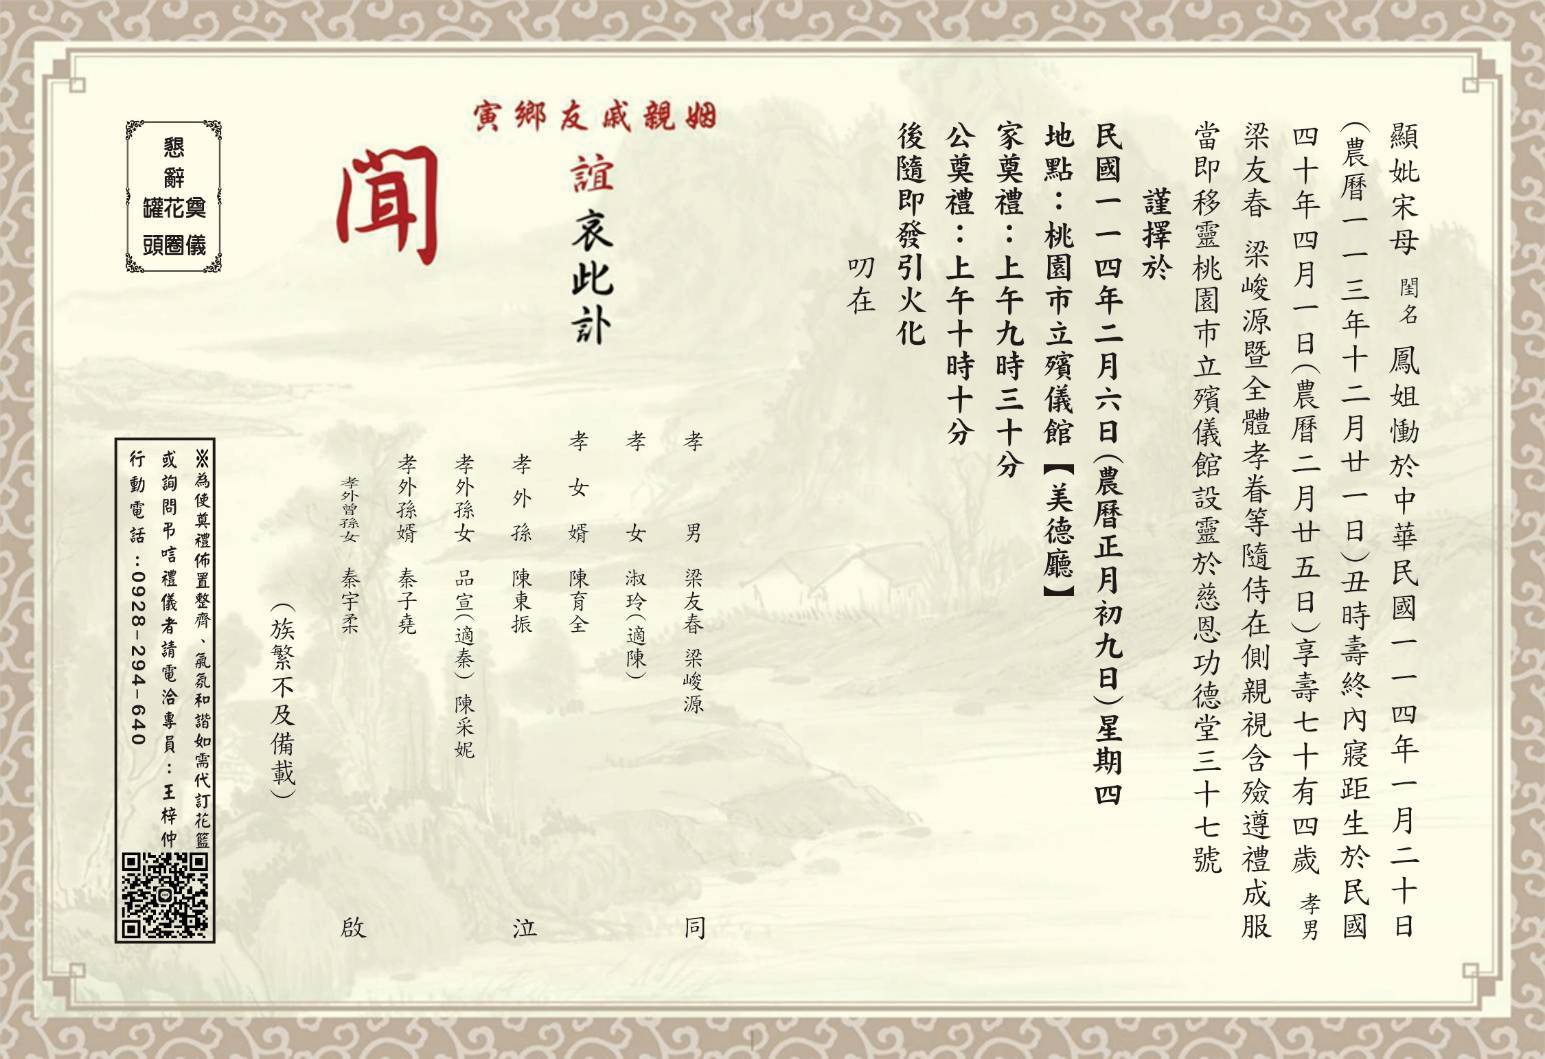 顯妣宋母 閨名 鳳姐慟於中華民國一一四年一月二十日
(農曆一一三年十二月廿一日)丑時壽終內寢距生於民國
四十年四月一日(農曆二月廿五日)享壽七十有四歲 孝男
梁友春 梁峻源暨全體孝眷等隨侍在側親視含殮遵禮成服
當即移靈桃園市立殯儀館設靈於慈恩功德堂三十七號
謹擇於
民國一一四年二月六日(農曆正月初九日)星期四
地點：桃園市立殯儀館【美德廳】
家奠禮：上午九時三十分
公奠禮：上午十時十分
後隨即發引火化
叨在
姻親戚友鄉寅
誼哀此訃
聞
孝男 梁友春 梁峻源
孝女 淑玲(適陳)
孝女婿 陳育全
孝外孫 陳東振
孝外孫女 品宣(適秦) 陳采妮
孝外孫婿 秦子堯
孝外曾孫女 秦宇柔
同
泣
啟
(族繁不及備載)
懇
辭
奠花罐
儀圈頭
※為使奠禮佈置整齊、氣氛和諧如需代訂花籃
或詢問弔唁禮儀者請電洽專員：王梓仲
行動電話：0928-294-640